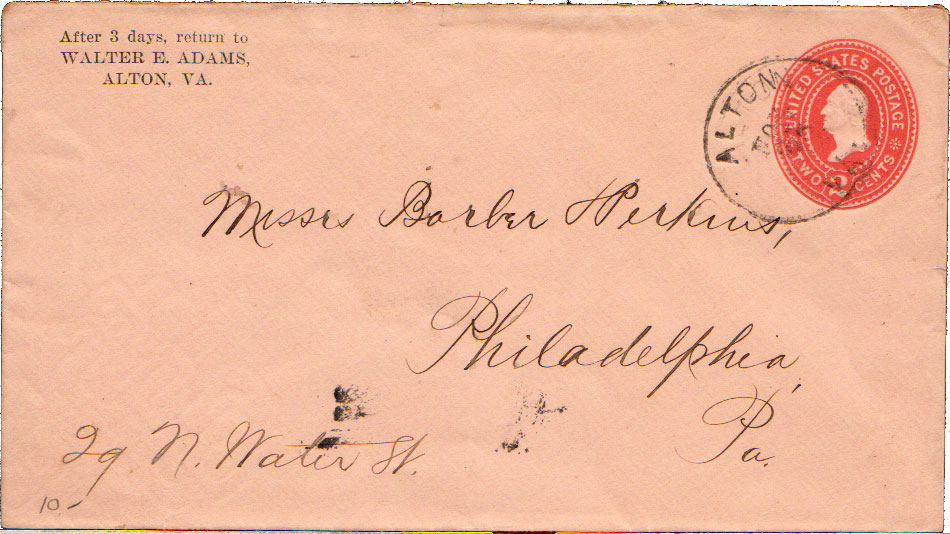 After 3 days, return to
WALTER E. ADAMS,
ALTON, VA.
UNITED STATES POSTAGE
TWO 2 CENTS
ALTON
Messrs Barber Perkins,
Philadelphia,
Pa.
29 N. Water St.
10.-